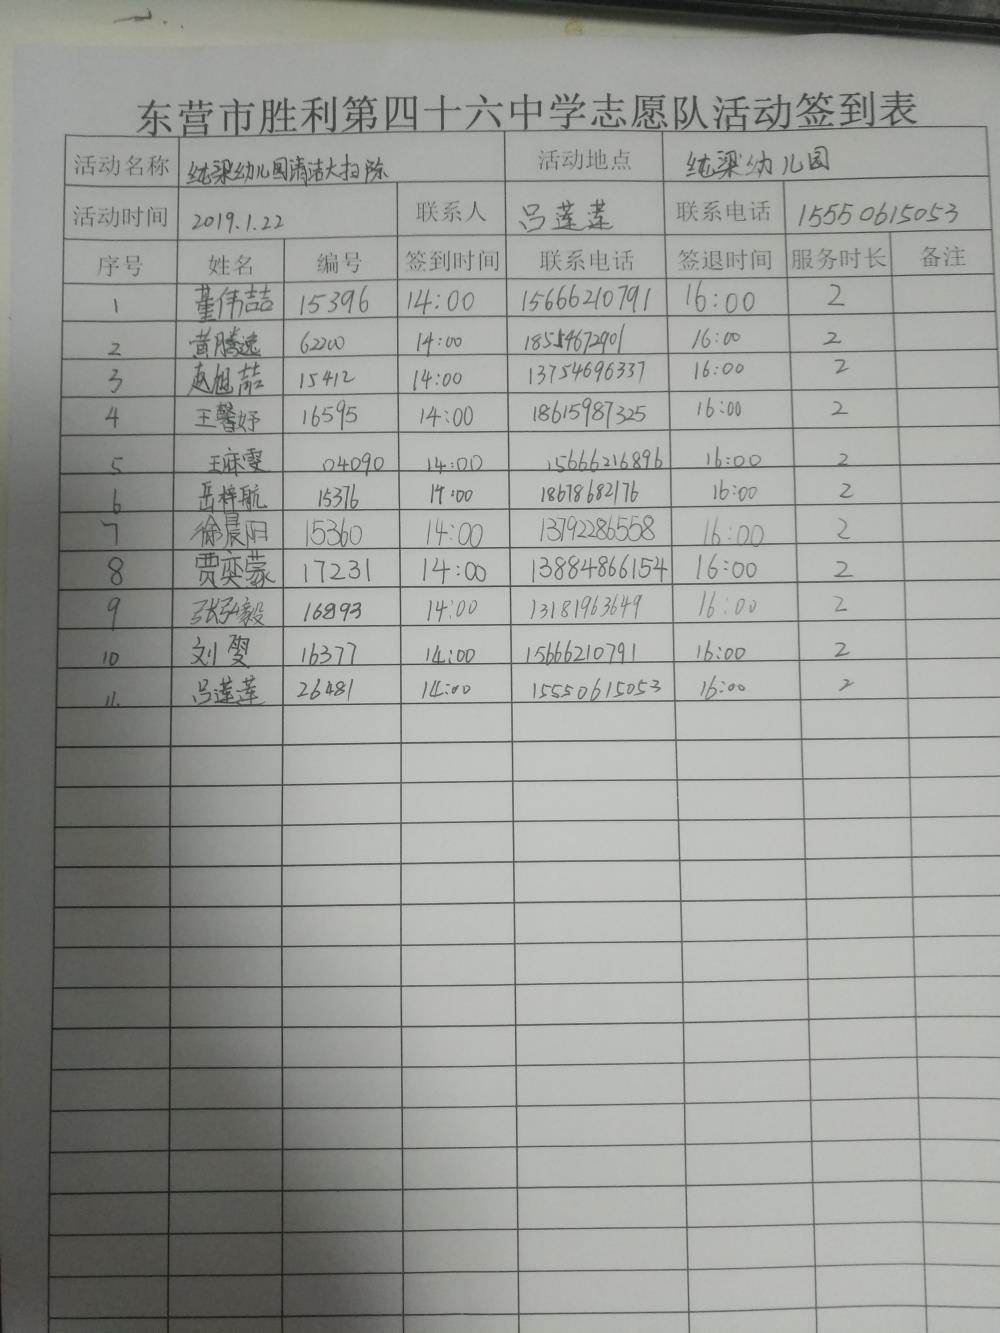 东营市胜利第四十六中学志愿队活动签到表
活动名称 纯梁幼儿园清洁大扫除 活动地点 纯梁幼儿园
活动时间 2019.1.22 联系人 吕莲莲 联系电话 15550615053
序号 姓名 编号 签到时间 联系电话 签退时间 服务时长 备注
1 董伟喆 15396 14:00 15666210791 16:00 2
2 黄腾逸 62200 14:00 18554672901 16:00 2
3 赵旭喆 15412 14:00 13754696337 16:00 2
4 王馨妤 16595 14:00 18615987325 16:00 2
5 王雯 04090 14:00 15666216896 16:00 2
6 岳梓航 15376 14:00 18678682176 16:00 2
7 徐晨阳 15360 14:00 13792286558 16:00 2
8 贾奕蒙 17231 14:00 13884866154 16:00 2
9 张弘毅 16893 14:00 13181963649 16:00 2
10 刘雯 16377 14:00 15666210791 16:00 2
11. 吕莲莲 26481 14:00 15550615053 16:00 2